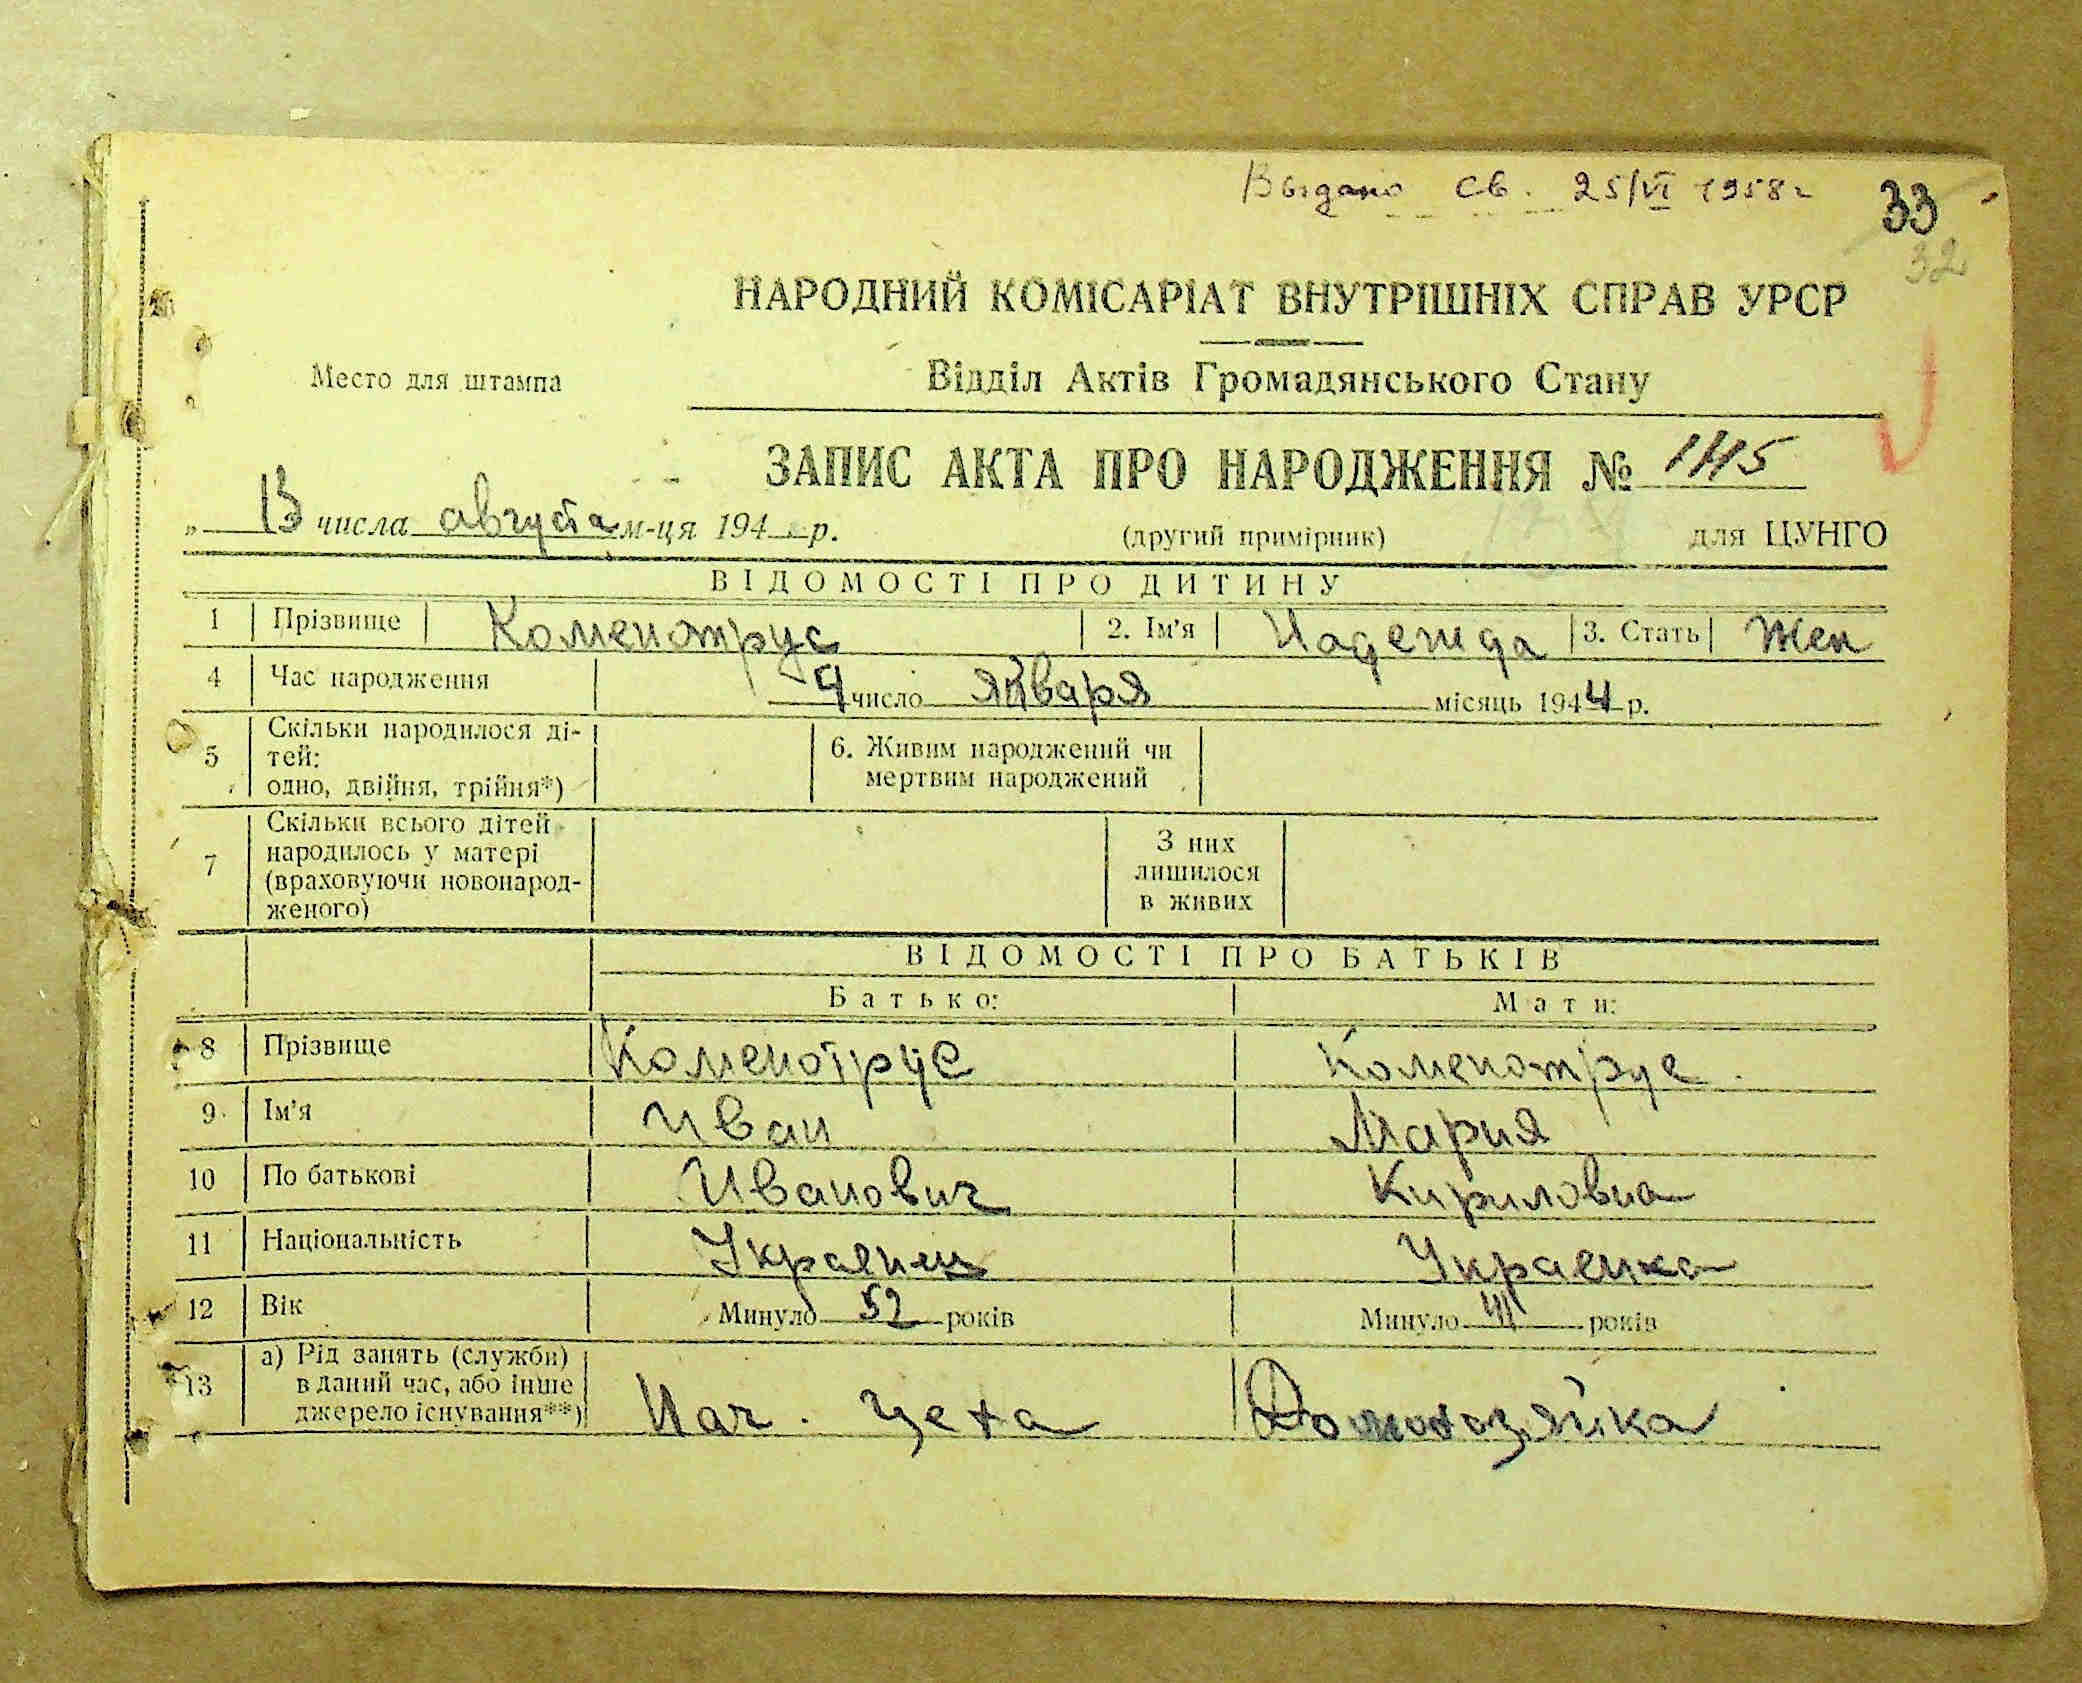 Выдано св. 25/VI 1958г
33
32
НАРОДНИЙ КОМІСАРІАТ ВНУТРІШНІХ СПРАВ УРСР
Место для штампа
Відділ Актів Громадянського Стану
ЗАПИС АКТА ПРО НАРОДЖЕННЯ № 145
„ 13 числа августа м-ця 194 р.
(другий примірник)
для ЦУНГО
ВІДОМОСТІ ПРО ДИТИНУ
1 Прізвище Коменотрус 2. Ім'я Надежда 3. Стать Жен
4 Час народження 4 число января місяць 1944 р.
5 Скільки народилося ді-
тей:
одно, двійня, трійня*)
6. Живим народжений чи
мертвим народжений
7 Скільки всього дітей
народилось у матері
(враховуючи новонарод-
женого)
З них
лишилося
в живих
ВІДОМОСТІ ПРО БАТЬКІВ
Батько: Мати:
8 Прізвище Коменотрус Коменотрус
9 Ім'я Иван Мария
10 По батькові Иванович Кириловна
11 Національність Украинец Украенка
12 Вік Минуло 52 років Минуло 41 років
13 а) Рід занять (служби)
в даний час, або інше
джерело існування**)
Нач. цеха Домохозяйка